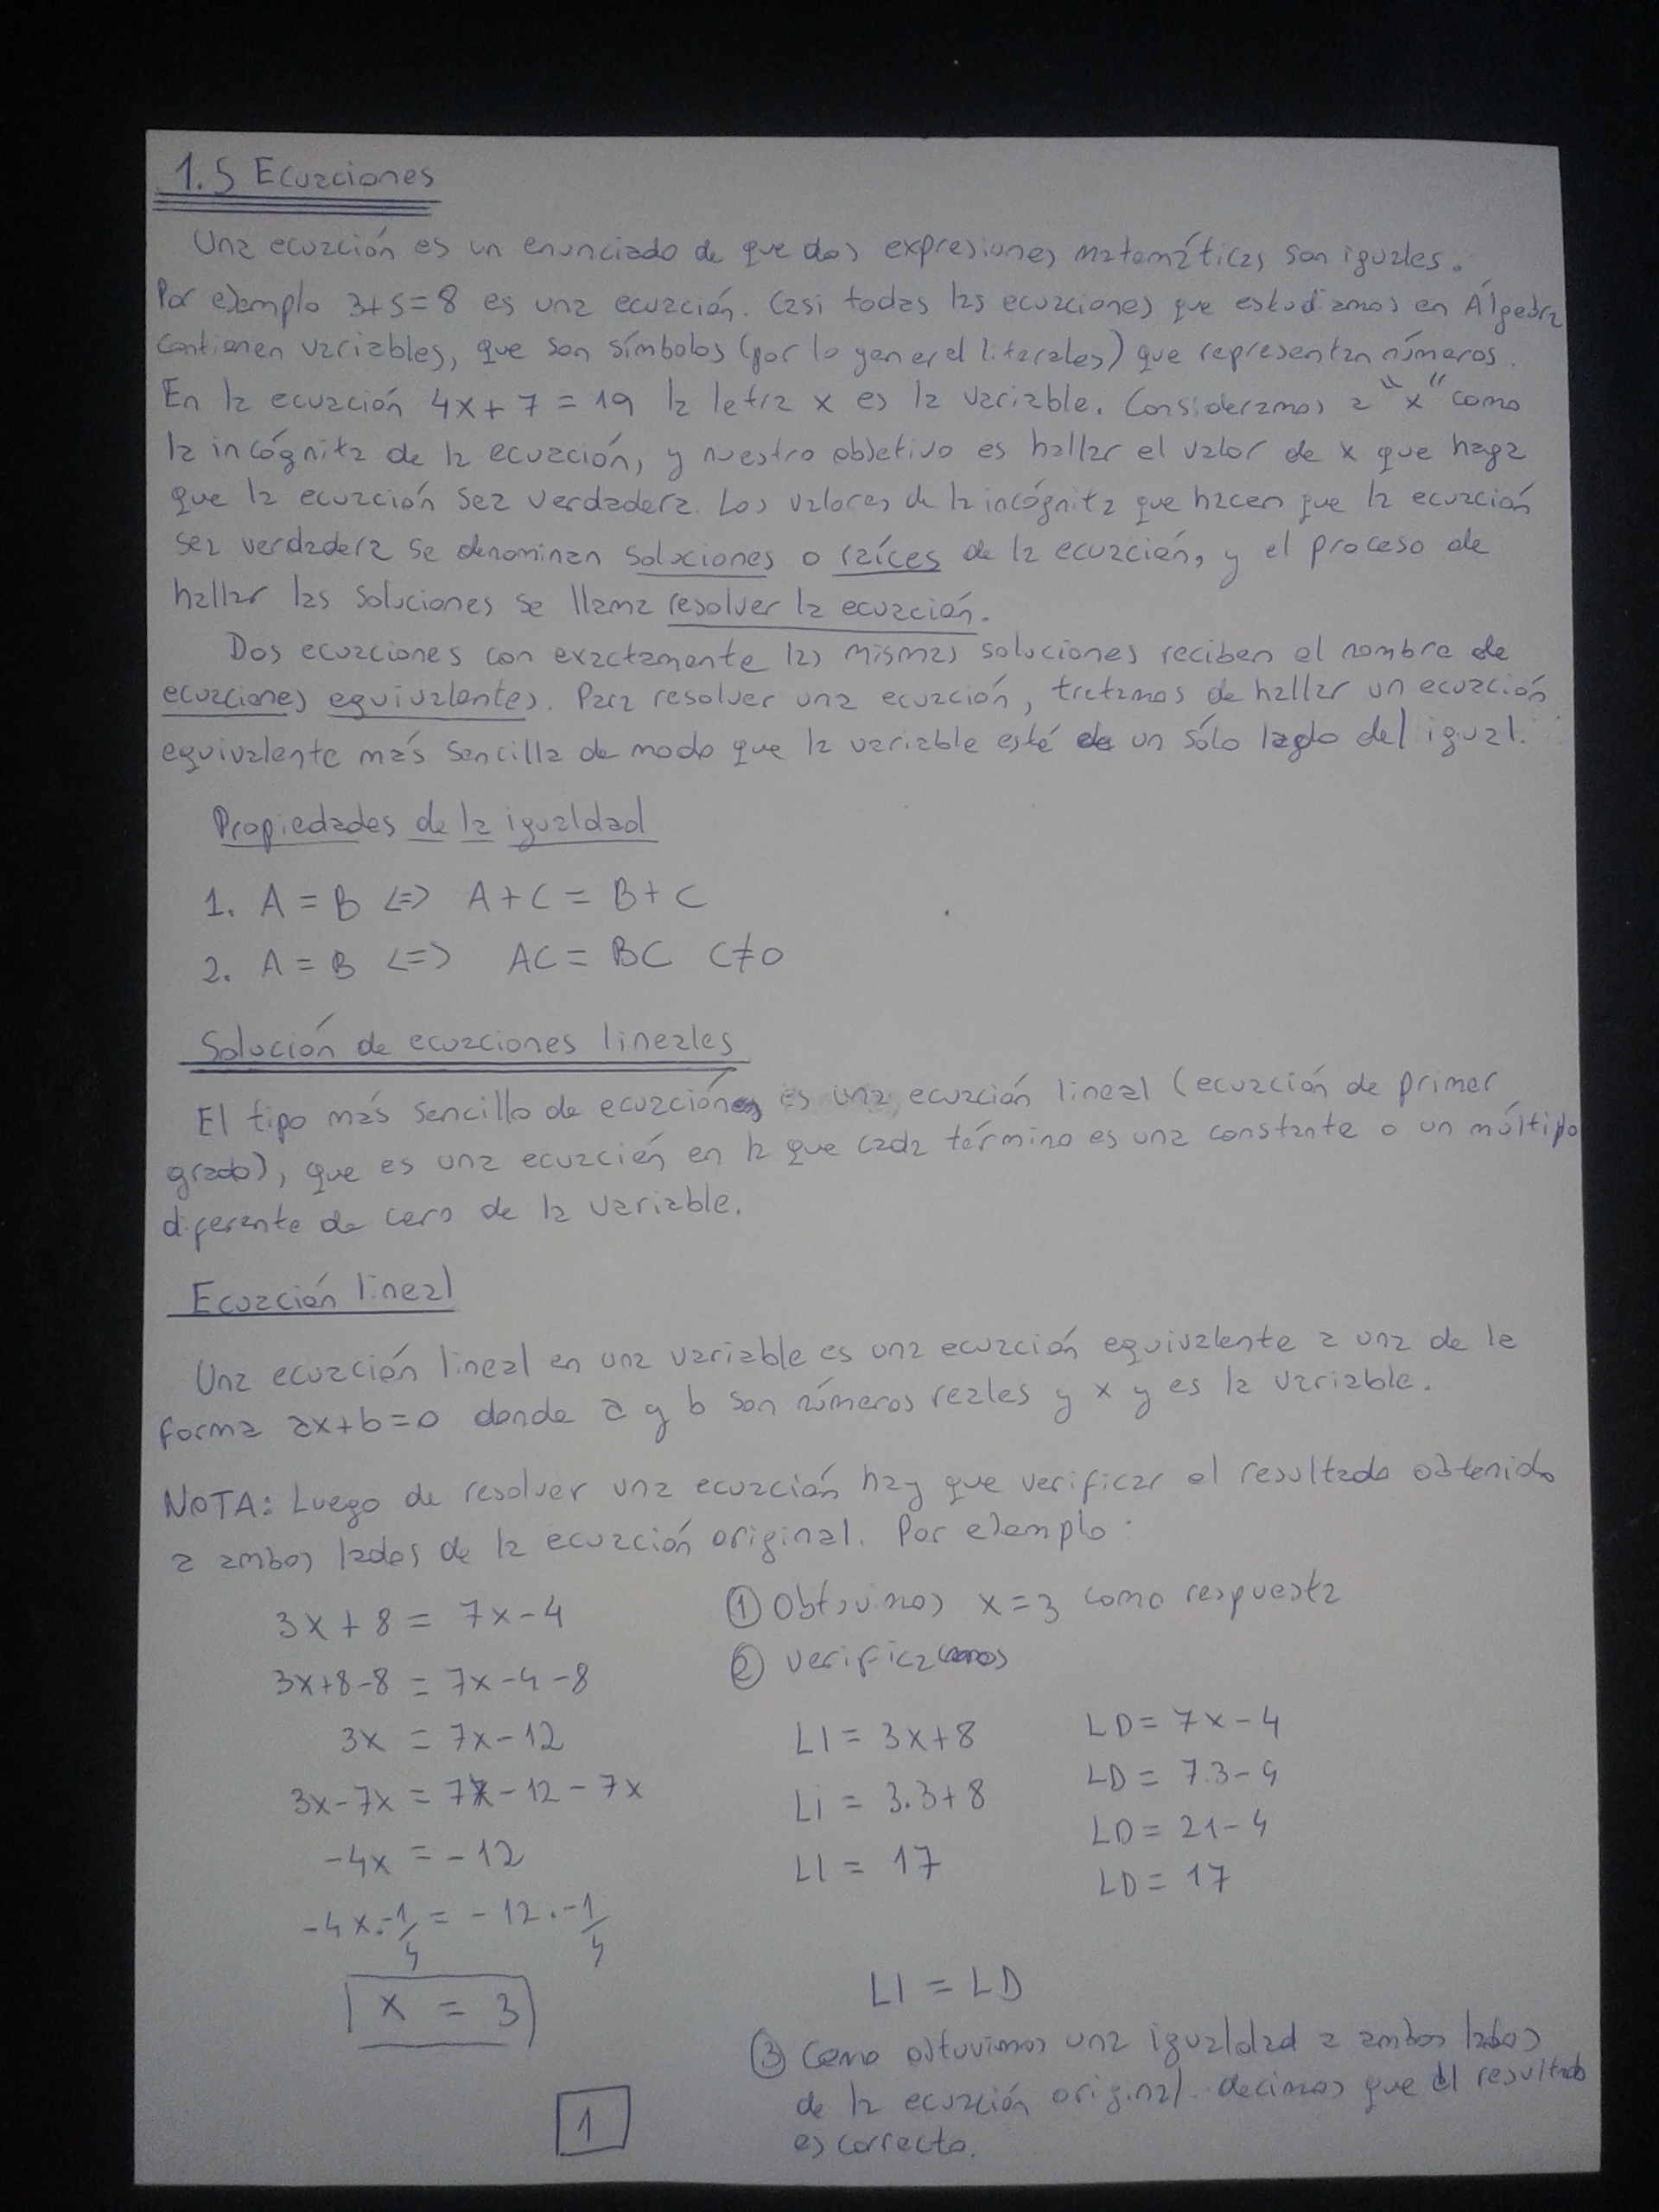 1.5 Ecuaciones
Una ecuación es un enunciado de que dos expresiones matemáticas son iguales.
Por ejemplo 3+5=8 es una ecuación. Casi todas las ecuaciones que estudiamos en Álgebra
contienen variables, que son símbolos (por lo general literales) que representan números.
En la ecuación 4x+7=19 la letra x es la variable. Consideramos a "x" como
la incógnita de la ecuación, y nuestro objetivo es hallar el valor de x que haga
que la ecuación sea verdadera. Los valores de la incógnita que hacen que la ecuación
sea verdadera se denominan soluciones o raíces de la ecuación, y el proceso de
hallar las soluciones se llama resolver la ecuación.
Dos ecuaciones con exactamente las mismas soluciones reciben el nombre de
ecuaciones equivalentes. Para resolver una ecuación, tratamos de hallar un ecuación
equivalente más sencilla de modo que la variable esté de un sólo lado del igual.
Propiedades de la igualdad
1. A = B <=> A+C = B+C
2. A = B <=> AC = BC C≠0
Solución de ecuaciones lineales
El tipo más sencillo de ecuación es una ecuación lineal (ecuación de primer
grado), que es una ecuación en la que cada término es una constante o un múltiplo
diferente de cero de la variable.
Ecuación lineal
Una ecuación lineal en una variable es una ecuación equivalente a una de la
forma ax+b=0 donde a y b son números reales y x y es la variable.
NOTA: Luego de resolver una ecuación hay que verificar el resultado obtenido
a ambos lados de la ecuación original. Por ejemplo:
3x+8 = 7x-4
3x+8-8 = 7x-4-8
3x = 7x-12
3x-7x = 7x-12-7x
-4x = -12
-4x.-1/4 = -12.-1/4
x = 3
① Obtuvimos x=3 como respuesta
② verificamos
LI = 3x+8
LI = 3.3+8
LI = 17
LD = 7x-4
LD = 7.3-4
LD = 21-4
LD = 17
LI = LD
③ Como obtuvimos una igualdad a ambos lados
de la ecuación original decimos que el resultado
es correcto.
1